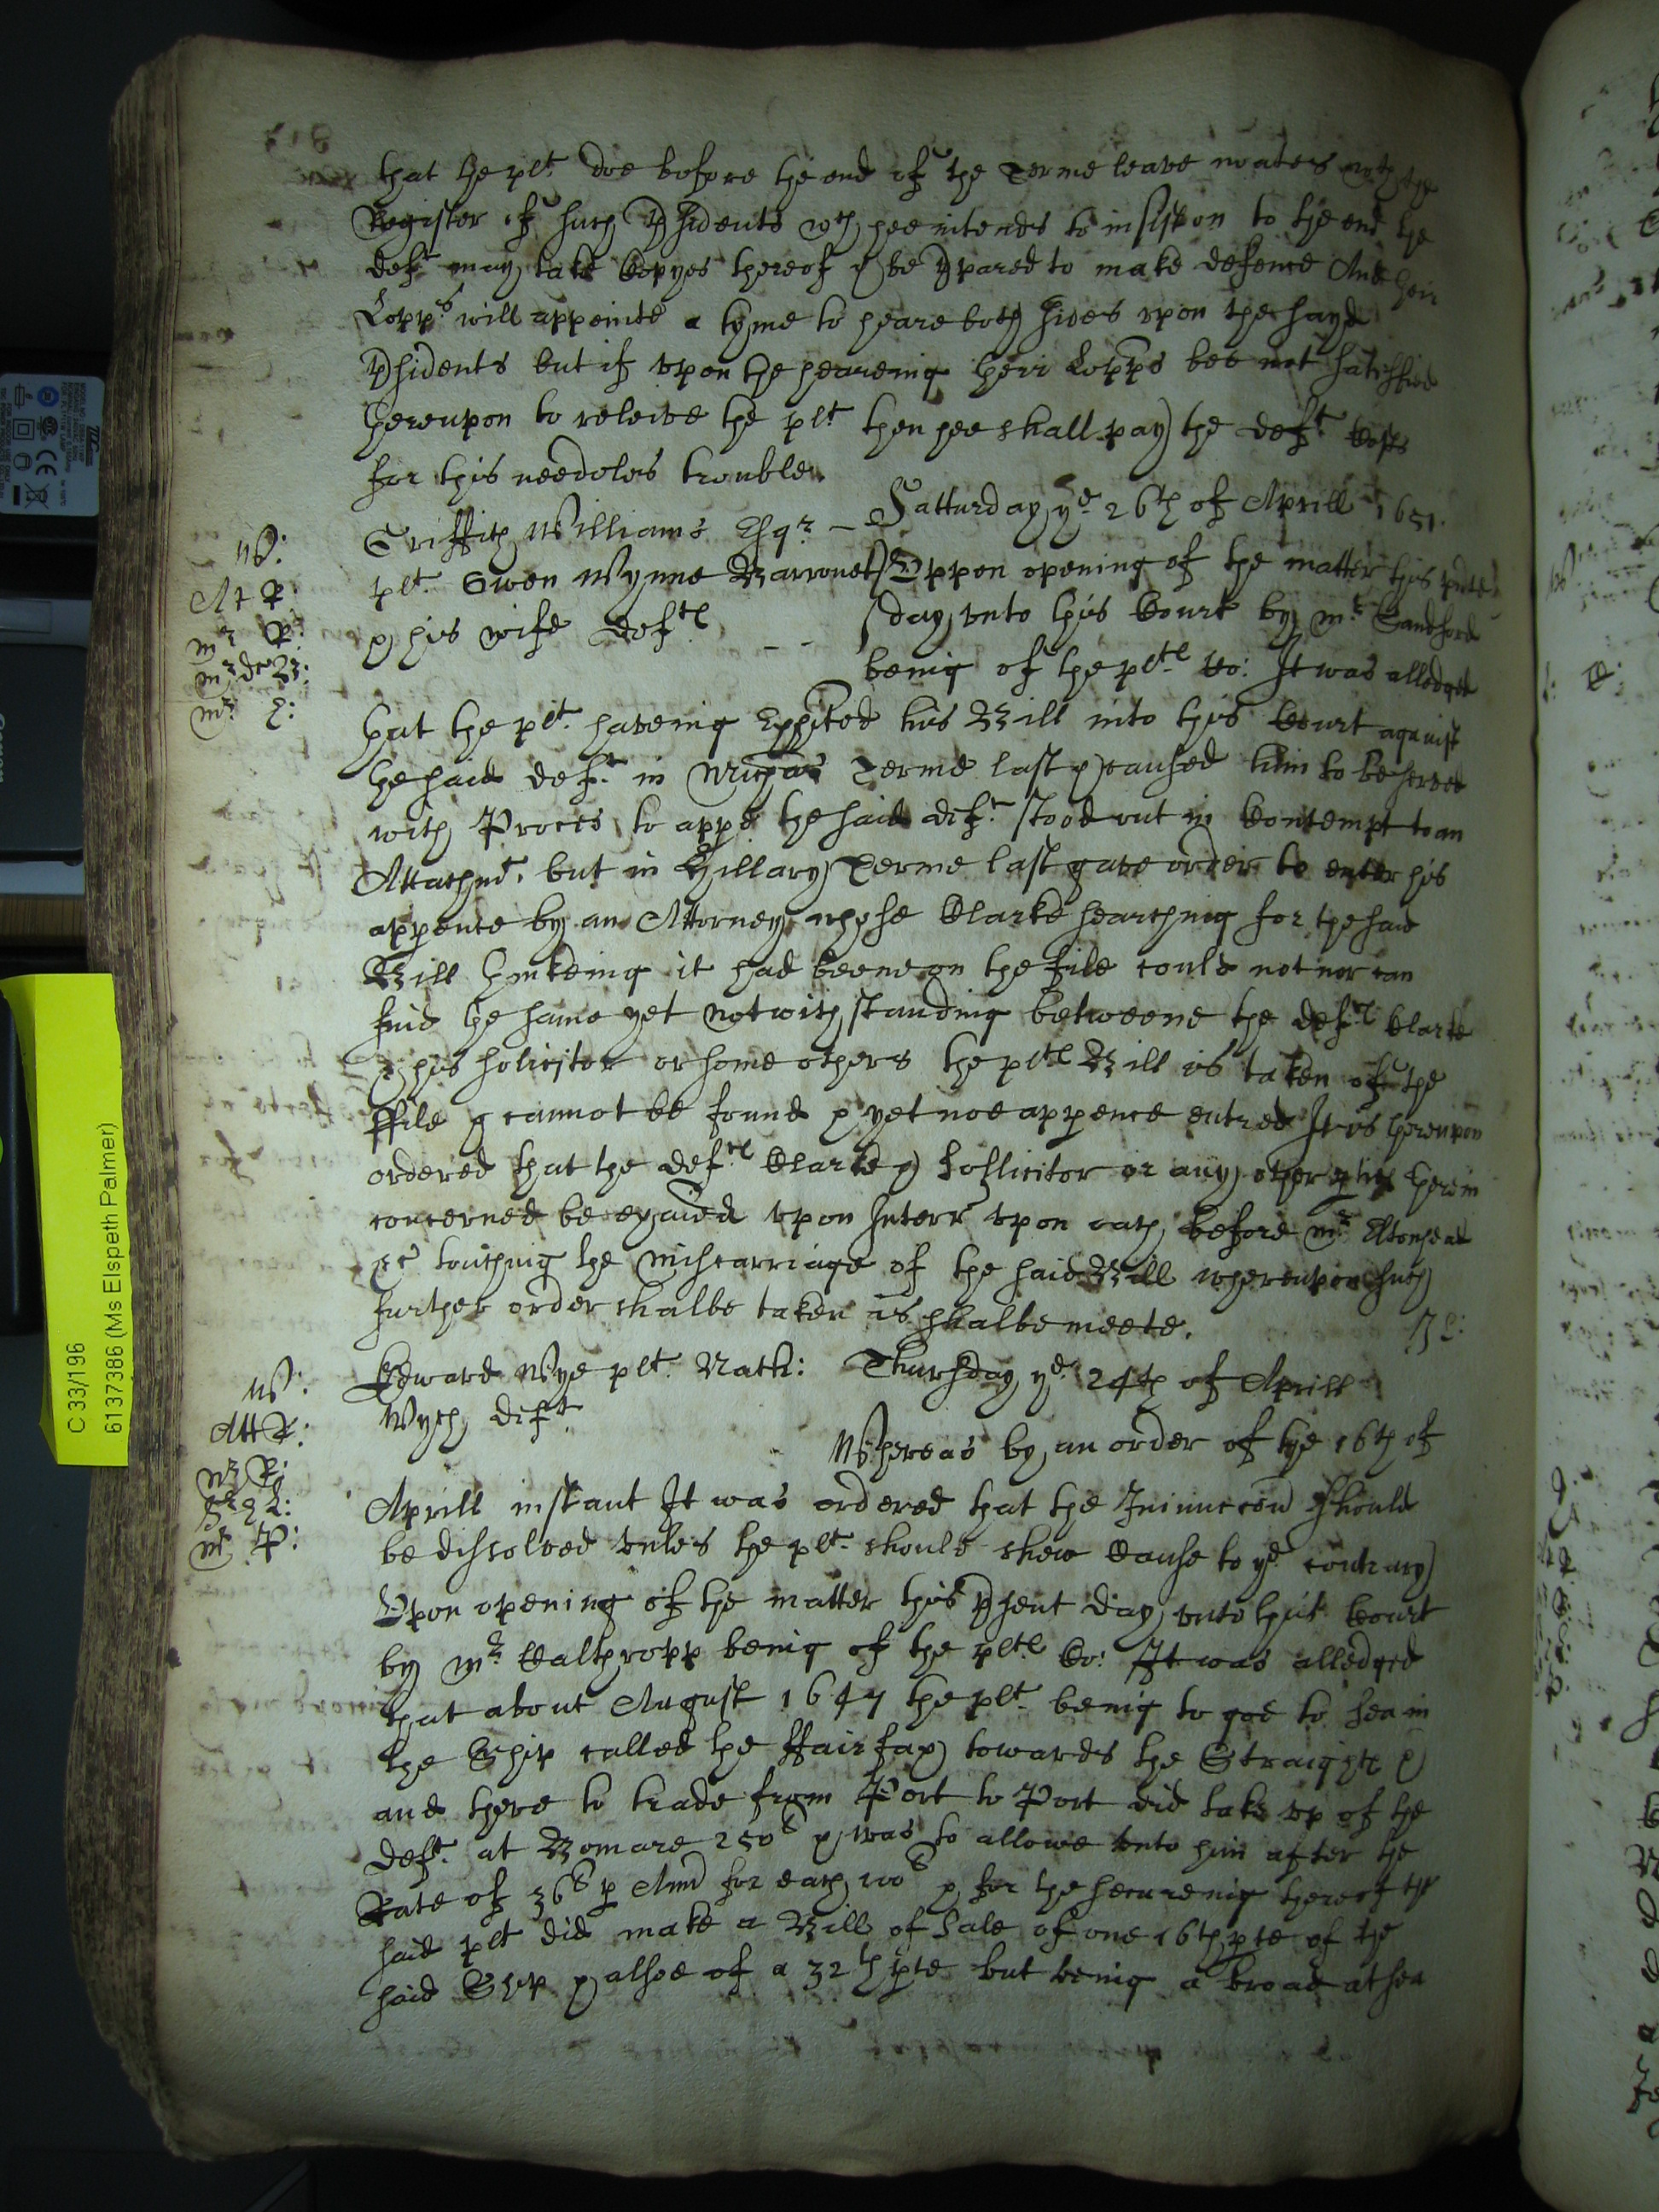 that the plt. doe before the end of the Terme leave noates wth the
Register of such Psidents wch hee intends to insist on to the end the
deft. may take Copyes thereof & be Ppared to make defence And their
Lopps. will appointe a tyme to heare both sides upon the sayd
Psidents but if upon the heareing their Lopps bee not satisfied
thereupon to releive the plt then hee shall pay the deft. Costs
for this needeles trouble.
Satturday ye 26th of Aprill 1651.
W:
At R:
Mr R:
Mr
Mr L:
Griffith Williams Esqr. –
plt. Owen Wynne Barronet
& his wife Deftes
Uppon opening of the matter this pnte
day unto this Court by Mr Sandford
being of the pltes Co: It was alledged
that the plt. haveing Exhited his Bill into this Court against
the said deft. in Michas Terme last & caused him to be served
with Proces to appe the said deft. stood out in Contempt to an
Attachmt. but in Hillary Terme last gave order to enter his
appence by an Attorney whose Clarke searching for the said
Bill thinkeing it had beene on the file could not nor can
find the same yet notwithstanding betweene the deftes Clarke
& his solicitor or some others the pltes Bill is taken of the
ffile & cannot be found & yet noe appence entred It is thereupon
ordered that the deftes Clarke & Sollicitor or any other pties therein
concerned be exaied upon Interr upon oath before Mr Eltonhead
&c touching the miscarriage of the said Bill whereupon such
further order shalbe taken as shalbe meete.
W:
Att R:
Mr R:
Mr P:
Edward Wye plt. Nath:
Wych Deft.
Thursday ye 24th of Aprill
Whereas by an order of the 16th of
Aprill instant It was ordered that the Iniunccon should
be dissolved unles the plt. should shew Cause to ye contrary
Upon opening of the matter this Psent day unto this Court
by Mr Calthropp being of the pltes Co: It was alledged
that about August 1647 the plt. being to goe to sea in
the Ship called the ffairfax towards the Straights &
and there to trade from Port to Port did take up of the
Deft. at 250l & was to allowe unto him after the
Rate of 36l p Ann for each 100l & for the secureing thereof the
said plt did make a Bill of Sale of one 16th pte of the
said Ship & alsoe of a 32th pte but being a broad at sea
C 33/196
6137386 (Ms Elspeth Palmer)